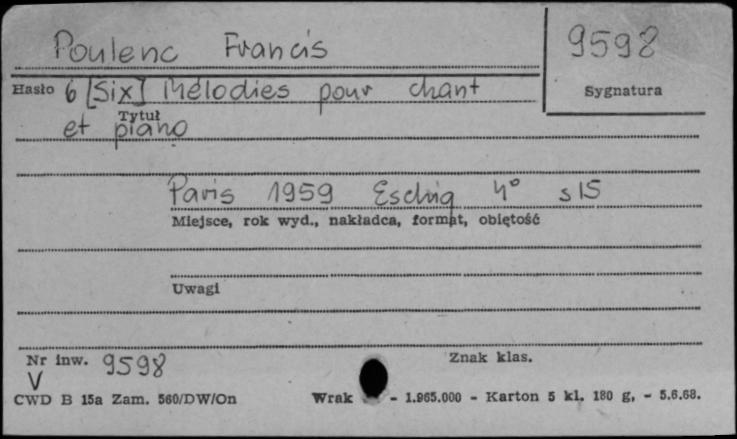 Poulenc Francis 9598
Hasło 6 [Six] Mélodies pour chant Sygnatura
Tytuł
et piano
Paris 1959 Eschig 4° s 15
Miejsce, rok wyd., nakładca, format, obiętość
Uwagi
Nr inw. 9598 Znak klas.
V
CWD B 15a Zam. 560/DW/On Wrak - 1.965.000 - Karton 5 kl. 180 g, - 5.6.68.